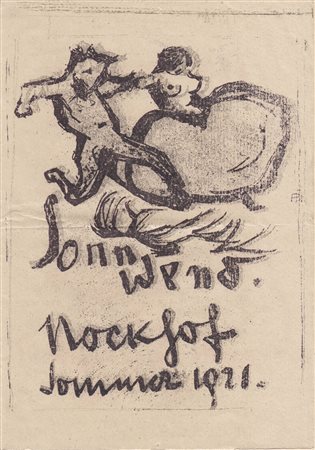 Sonn
wend.
Nockhof
Sommer 1921.